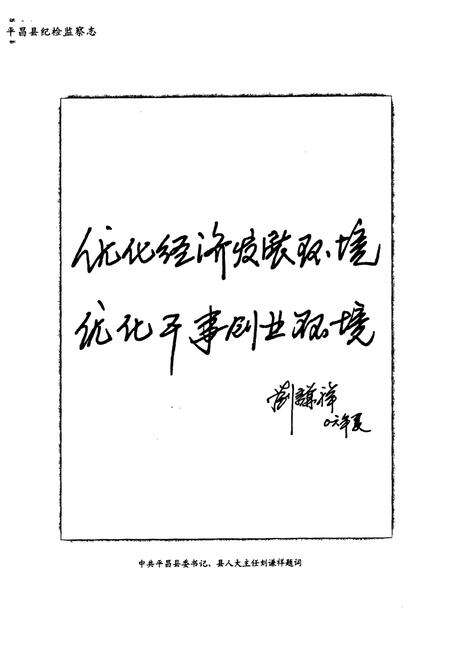 平昌县纪检监察志
优化经济发展环境
优化干事创业环境
刘谦祥
06年夏
中共平昌县委书记、县人大主任刘谦祥题词